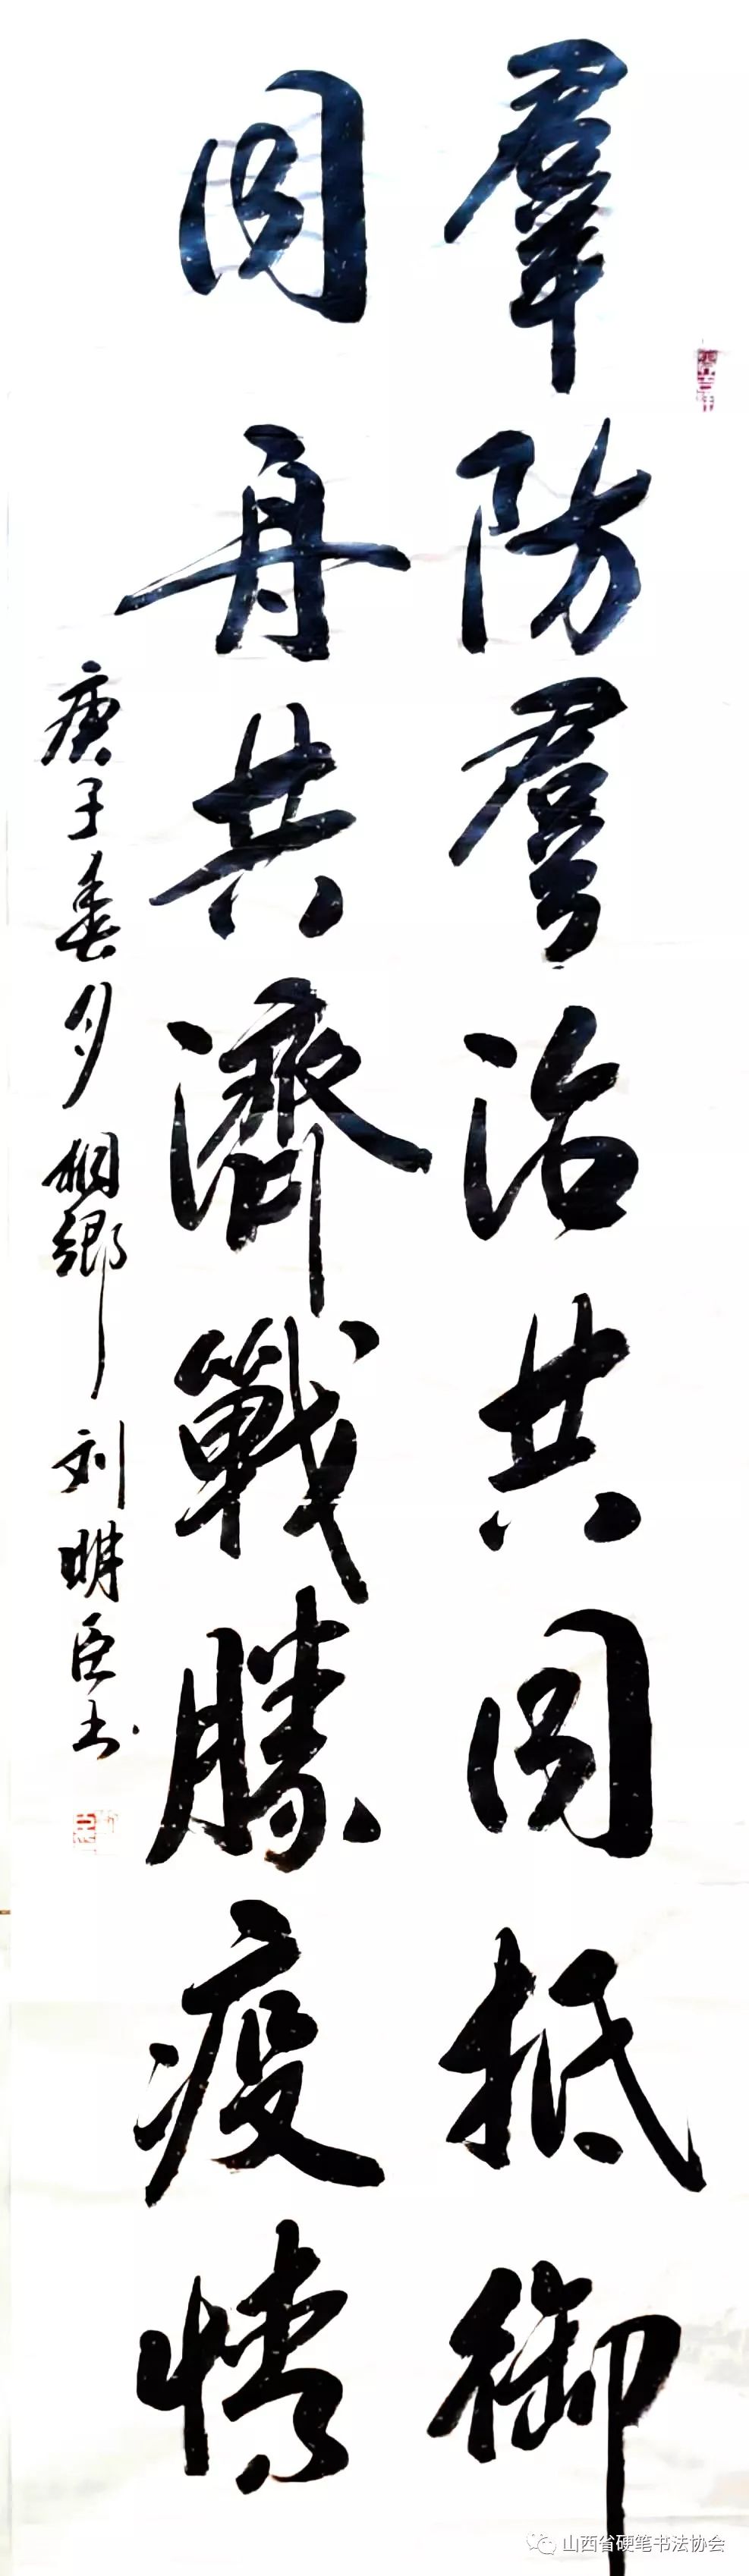 羣防羣治共同抵御
同舟共濟戰勝疫情
庚子春月桐鄉刘明臣书
山西省硬笔书法协会